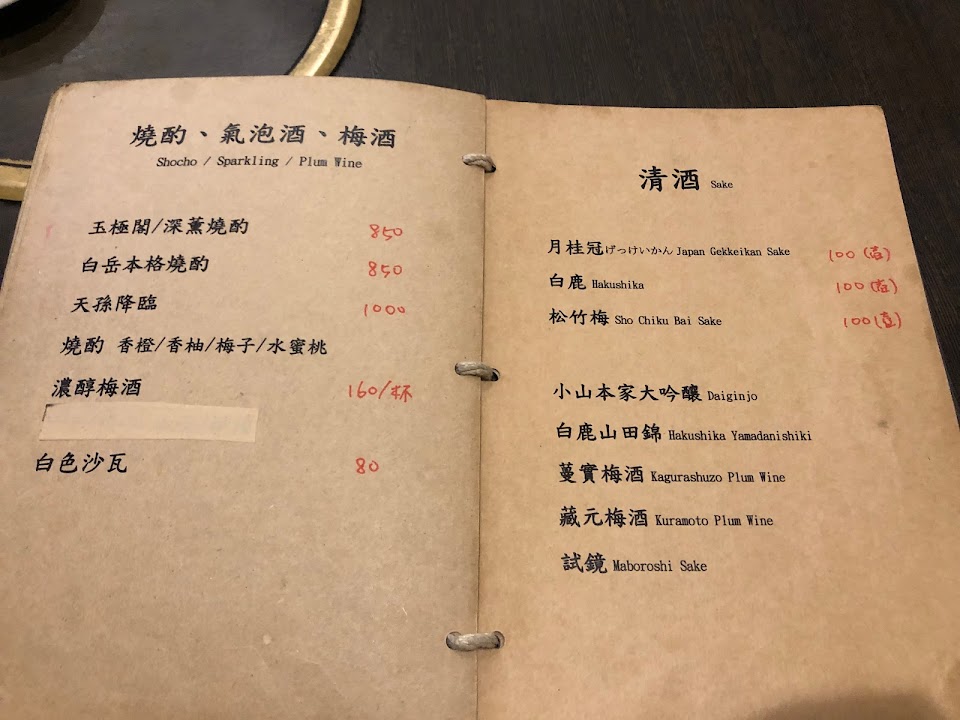 燒酌、氣泡酒、梅酒
Shocho / Sparkling / Plum Wine
玉極閣/深薰燒酌 850
白岳本格燒酌 850
天孫降臨 1000
燒酌 香橙/香柚/梅子/水蜜桃
濃醇梅酒 160/杯
白色沙瓦 80
清酒 Sake
月桂冠げっけいかん Japan Gekkeikan Sake 100 (壺)
白鹿 Hakushika 100 (壺)
松竹梅 Sho Chiku Bai Sake 100 (壺)
小山本家大吟釀 Daiginjo
白鹿山田錦 Hakushika Yamadanishiki
蔓實梅酒 Kagurashuzo Plum Wine
藏元梅酒 Kuramoto Plum Wine
試鏡 Maboroshi Sake